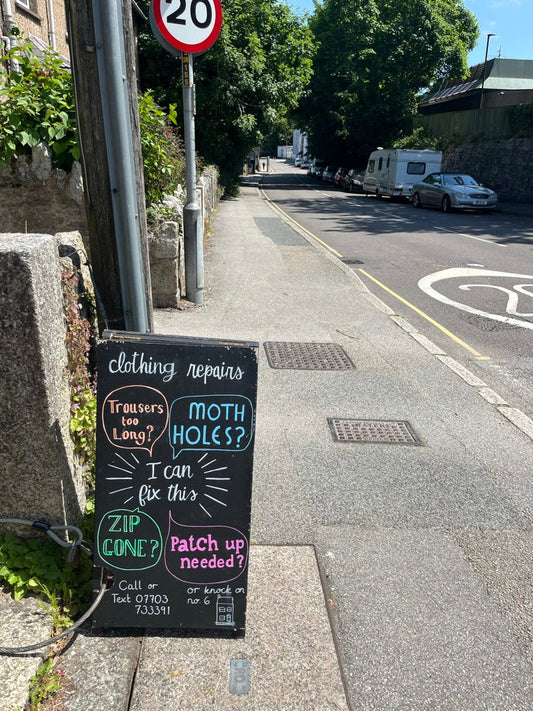 20
clothing repairs
Trousers
too
Long?
MOTH
HOLES?
I can
fix this
ZIP
GONE?
Patch up
needed?
Call or
Text 07703
733391
or knock on
no. 6